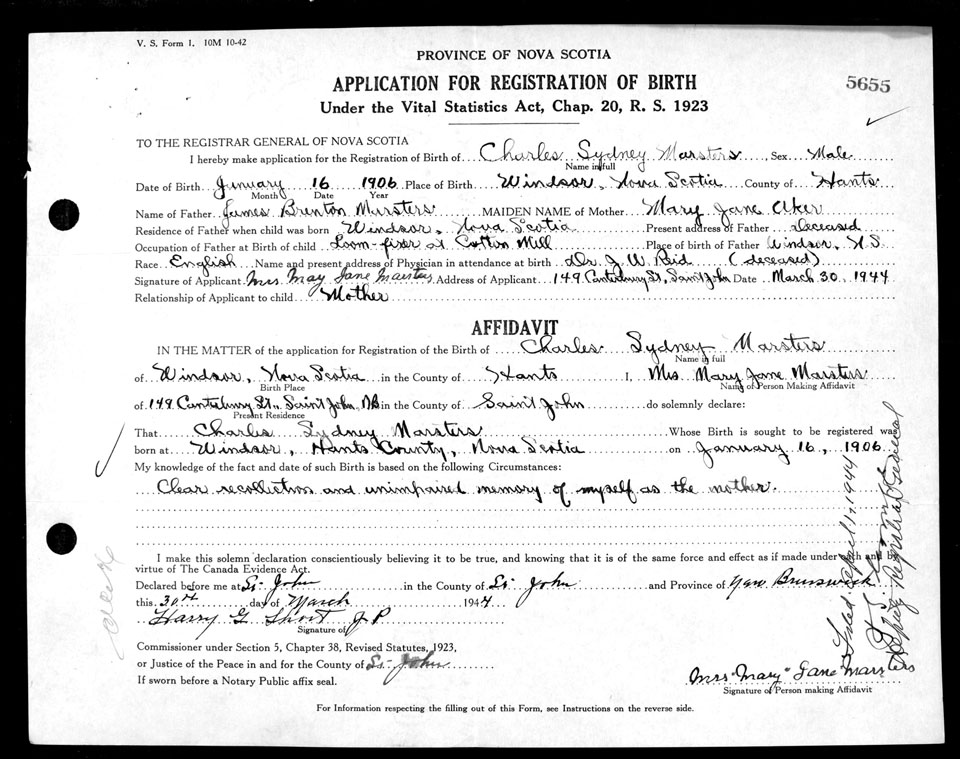 V. S. Form 1. 10M 10-42
PROVINCE OF NOVA SCOTIA
APPLICATION FOR REGISTRATION OF BIRTH
5655
Under the Vital Statistics Act, Chap. 20, R. S. 1923
TO THE REGISTRAR GENERAL OF NOVA SCOTIA
I hereby make application for the Registration of Birth of Charles Sydney Marsters, Sex Male
Name in full
Date of Birth January 16 1906 Place of Birth Windsor, Nova Scotia County of Hants
Month Date Year
Name of Father James Brenton Marsters MAIDEN NAME of Mother Mary Jane Aker
Residence of Father when child was born Windsor, Nova Scotia Present address of Father deceased
Occupation of Father at Birth of child Loom-fixer at Cotton Mill Place of birth of Father Windsor, N.S.
Race English Name and present address of Physician in attendance at birth Dr. J. W. Reid (deceased)
Signature of Applicant Mrs May Jane Marsters Address of Applicant 149 Canterbury St, Saint John Date March 30 1944
Relationship of Applicant to child Mother
AFFIDAVIT
IN THE MATTER of the application for Registration of the Birth of Charles Sydney Marsters
Name in full
of Windsor, Nova Scotia in the County of Hants I, Mrs Mary Jane Marsters
Birth Place Name of Person Making Affidavit
of 149 Canterbury St., Saint John NB in the County of Saint John do solemnly declare:
Present Residence
That Charles Sydney Marsters Whose Birth is sought to be registered was
born at Windsor, Hants County, Nova Scotia on January 16, 1906
My knowledge of the fact and date of such Birth is based on the following Circumstances:
Clear recollection and unimpaired memory of myself as the mother.
I make this solemn declaration conscientiously believing it to be true, and knowing that it is of the same force and effect as if made under oath and by
virtue of The Canada Evidence Act.
Declared before me at St. John in the County of St. John and Province of New Brunswick
this 30th day of March 1944
Harry G Short J P
Signature of
Commissioner under Section 5, Chapter 38, Revised Statutes, 1923,
or Justice of the Peace in and for the County of St. John
If sworn before a Notary Public affix seal.
Mrs "Mary" Jane Marsters
Signature of Person making Affidavit
For Information respecting the filling out of this Form, see Instructions on the reverse side.
Filed April 1, 1944
Deputy Registrar General